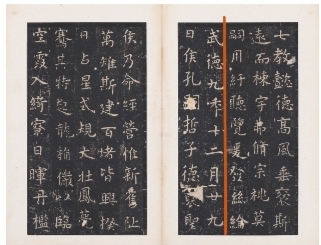 七教懿德高風垂裒斯
遠而棟宇弗脩宗祧莫
嗣用紆聽覽爰發絲綸
武德九年十二月廿九
日侯孔嗣哲子德聖
侯乃命經營惟新舊阯
萬雉斯建百堵皆興揆
日占星式規大壯鳳甍
騫其特起龍桷儼臨
空霞入綺寮日暉丹檻